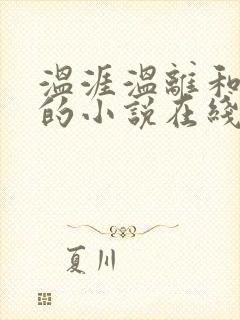 温涯温離和
的小说在綫
夏川